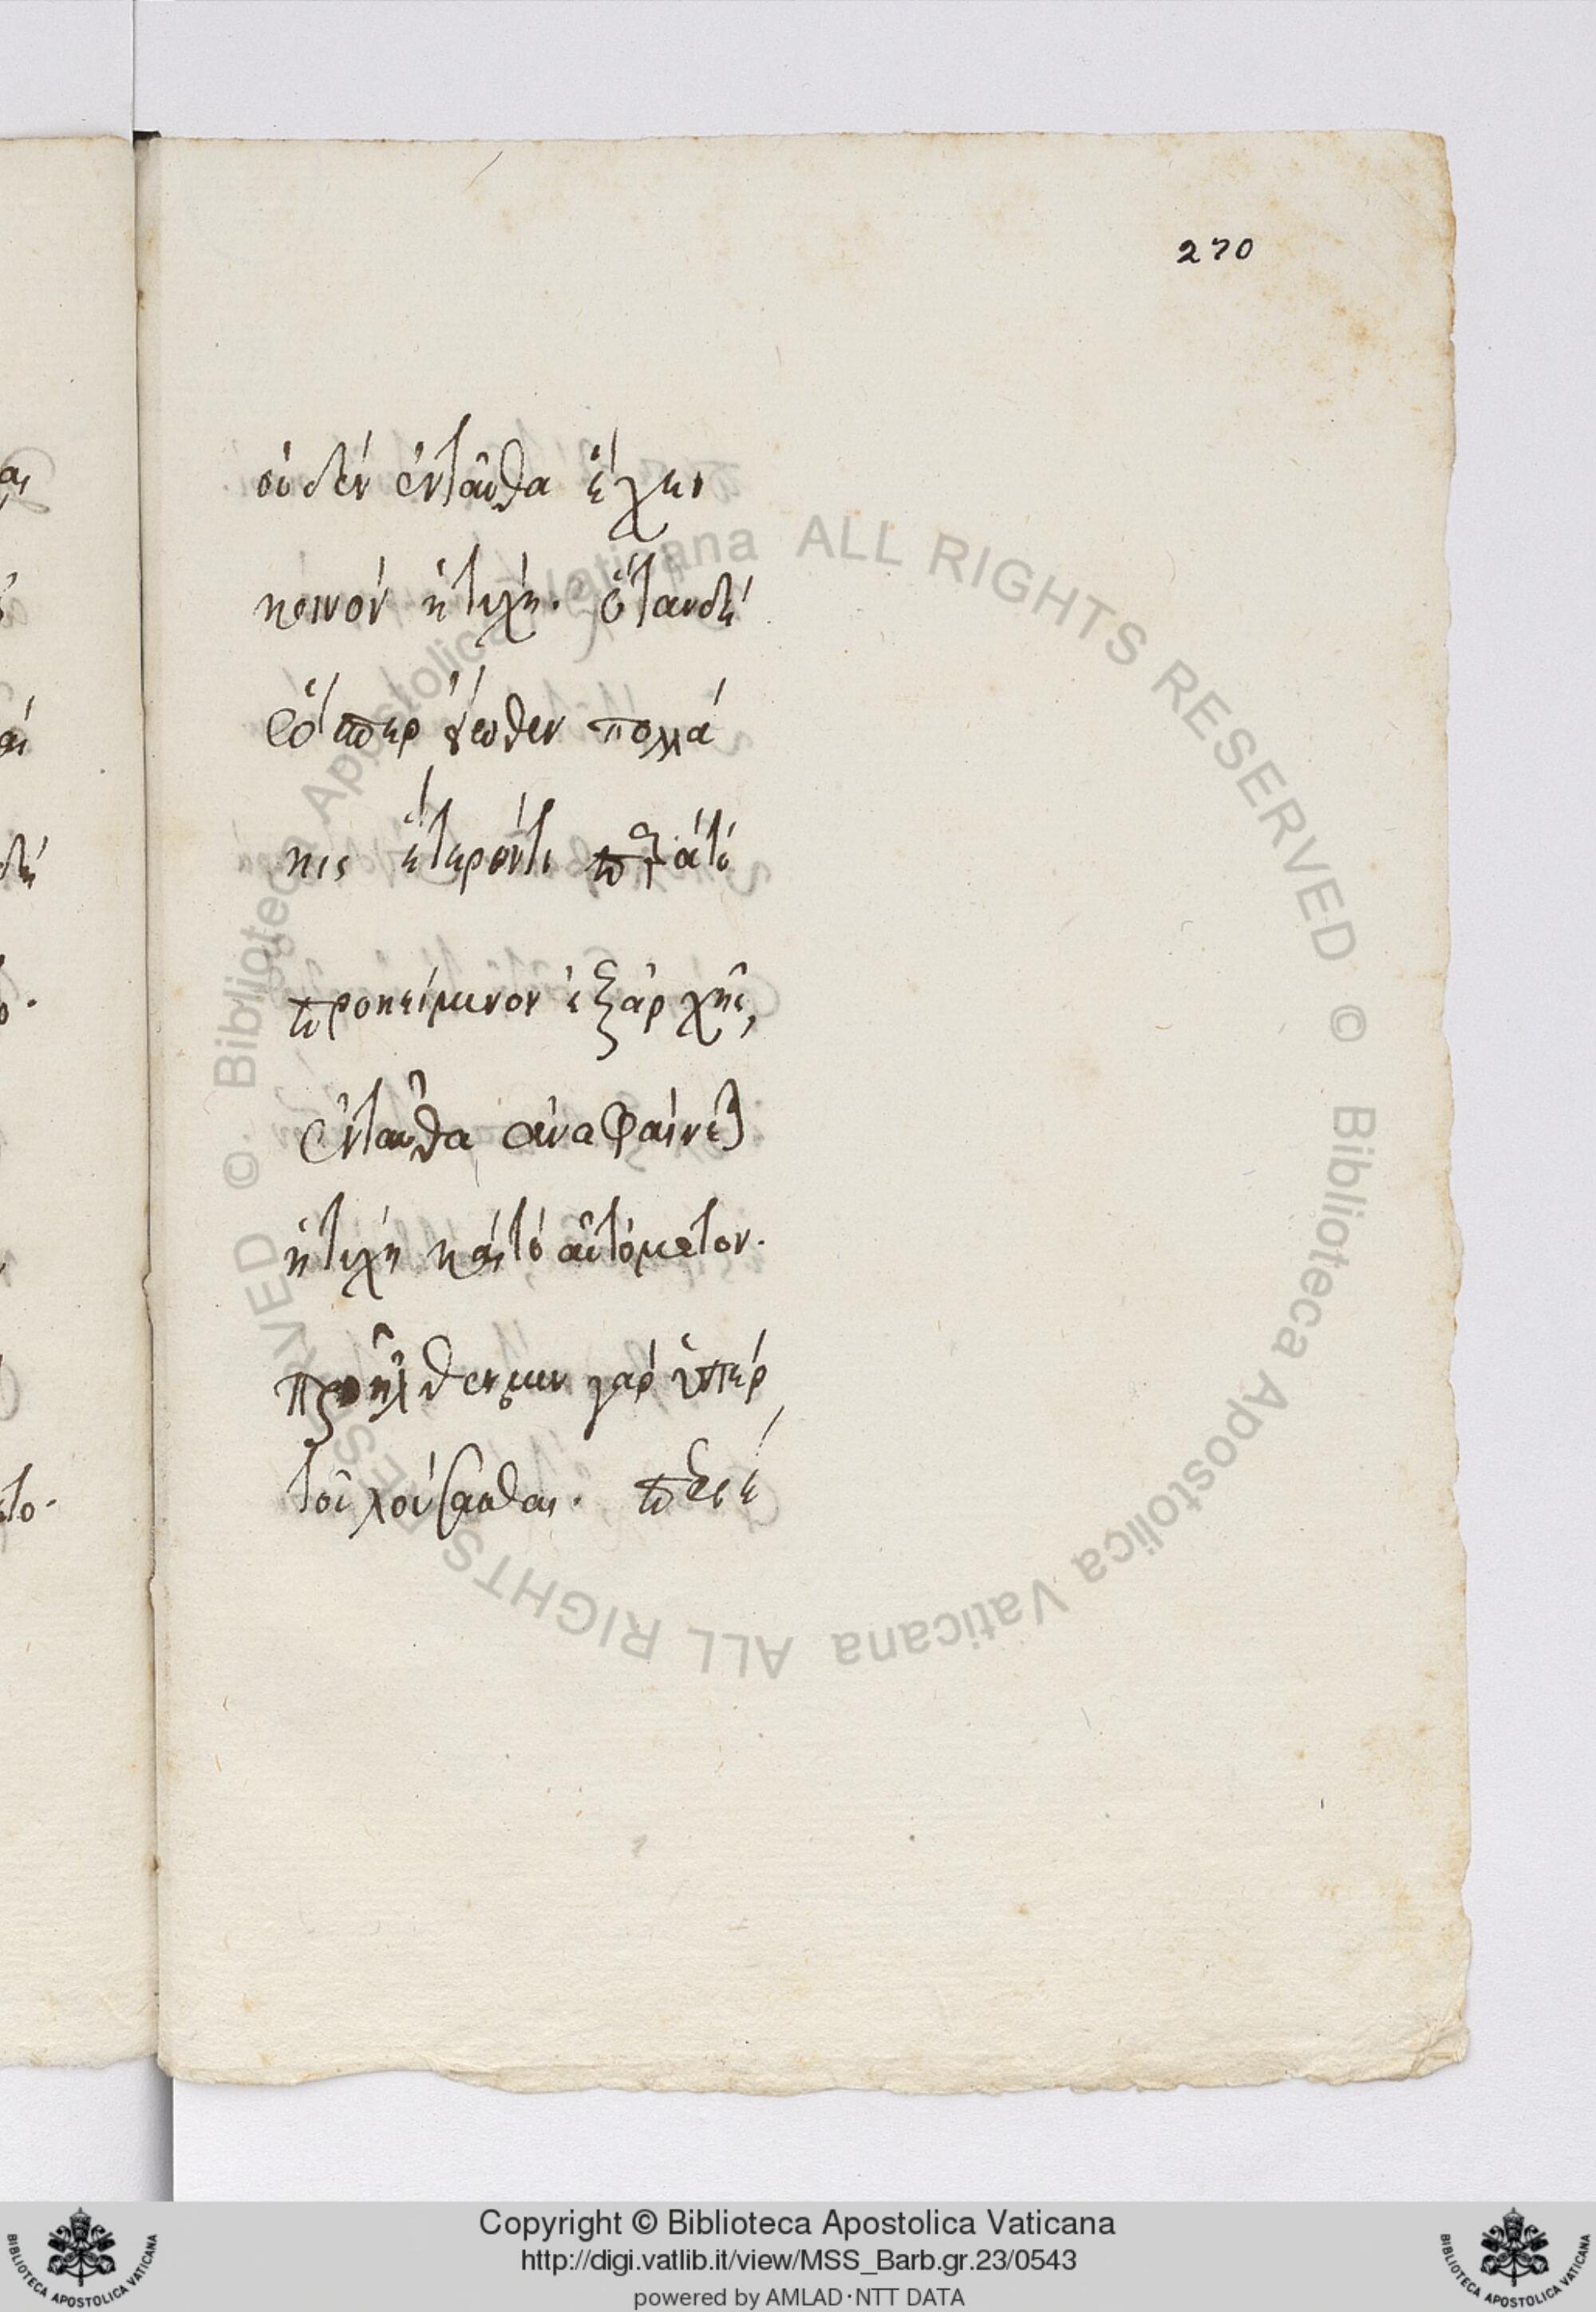 270
οὐδὲν ἐνταῦθα ἔχει
κοινὸν ἡ τύχη. ὅταν δὲ
ὅπερ γέωθεν πολλά
κις ἕτερόντι παρὰ τὸ
προκείμενον ἐξ ἀρχῆς,
ἐνταῦθα ἀναφαίνεται
ἡ τύχη καὶ τὸ αὐτόματον.
προῆλθεν μεν γὰρ ὑπὲρ
τοῦ λούσασθαι.
© Biblioteca Apostolica Vaticana ALL RIGHTS RESERVED © Biblioteca Apostolica Vaticana ALL RIGHTS RESERVED
BIBLIOTECA APOSTOLICA VATICANA
Copyright © Biblioteca Apostolica Vaticana
http://digi.vatlib.it/view/MSS_Barb.gr.23/0543
powered by AMLAD·NTT DATA
BIBLIOTECA APOSTOLICA VATICANA